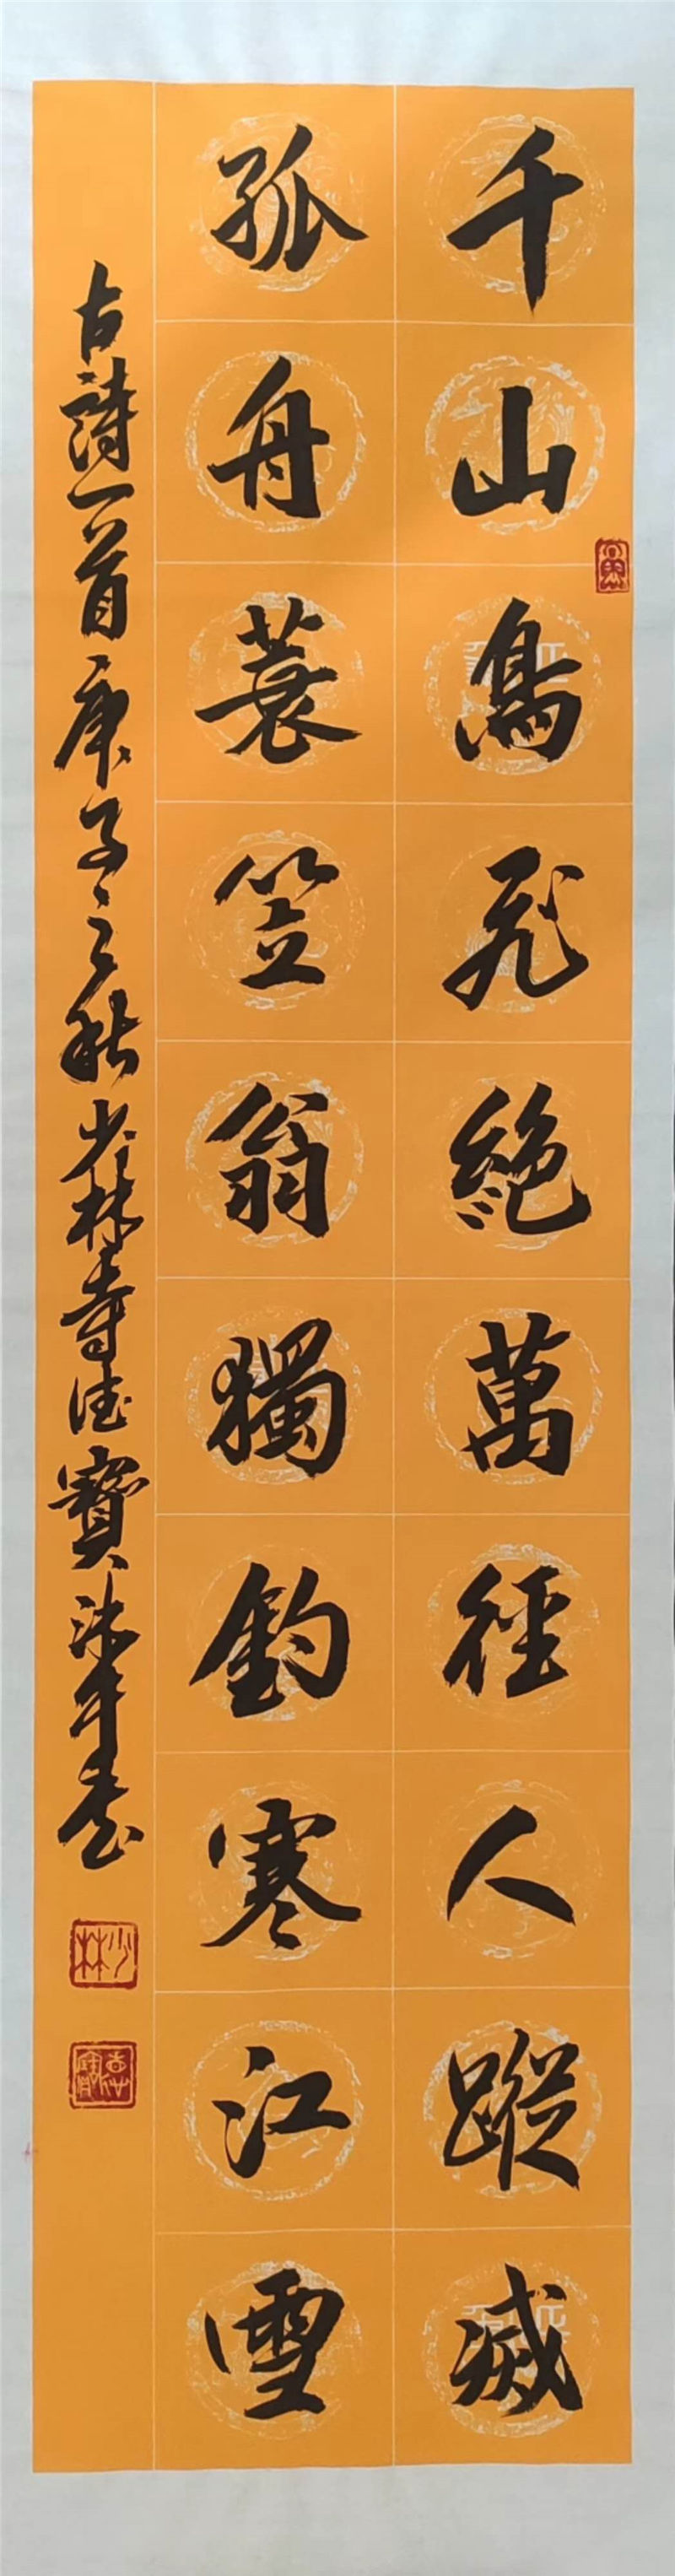 千山鳥飛絶萬徑人蹤滅
孤舟蓑笠翁獨釣寒江雪
古詩一首庚子之秋少林寺德寶沐手書
少林